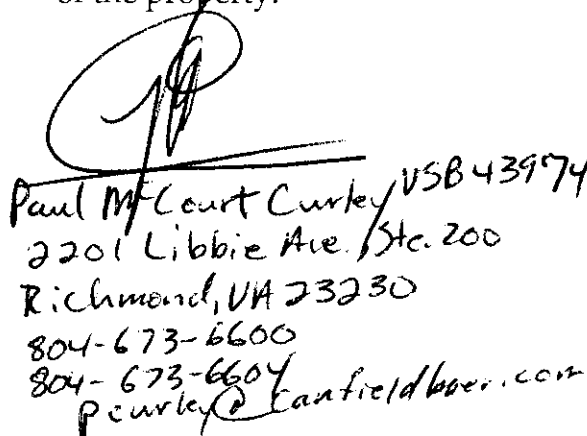 of the property.
Paul McCourt Curley VSB 43974
2201 Libbie Ave. Ste. 200
Richmond, VA 23230
804-673-6600
804-673-6604
pcurley@canfieldbaer.com